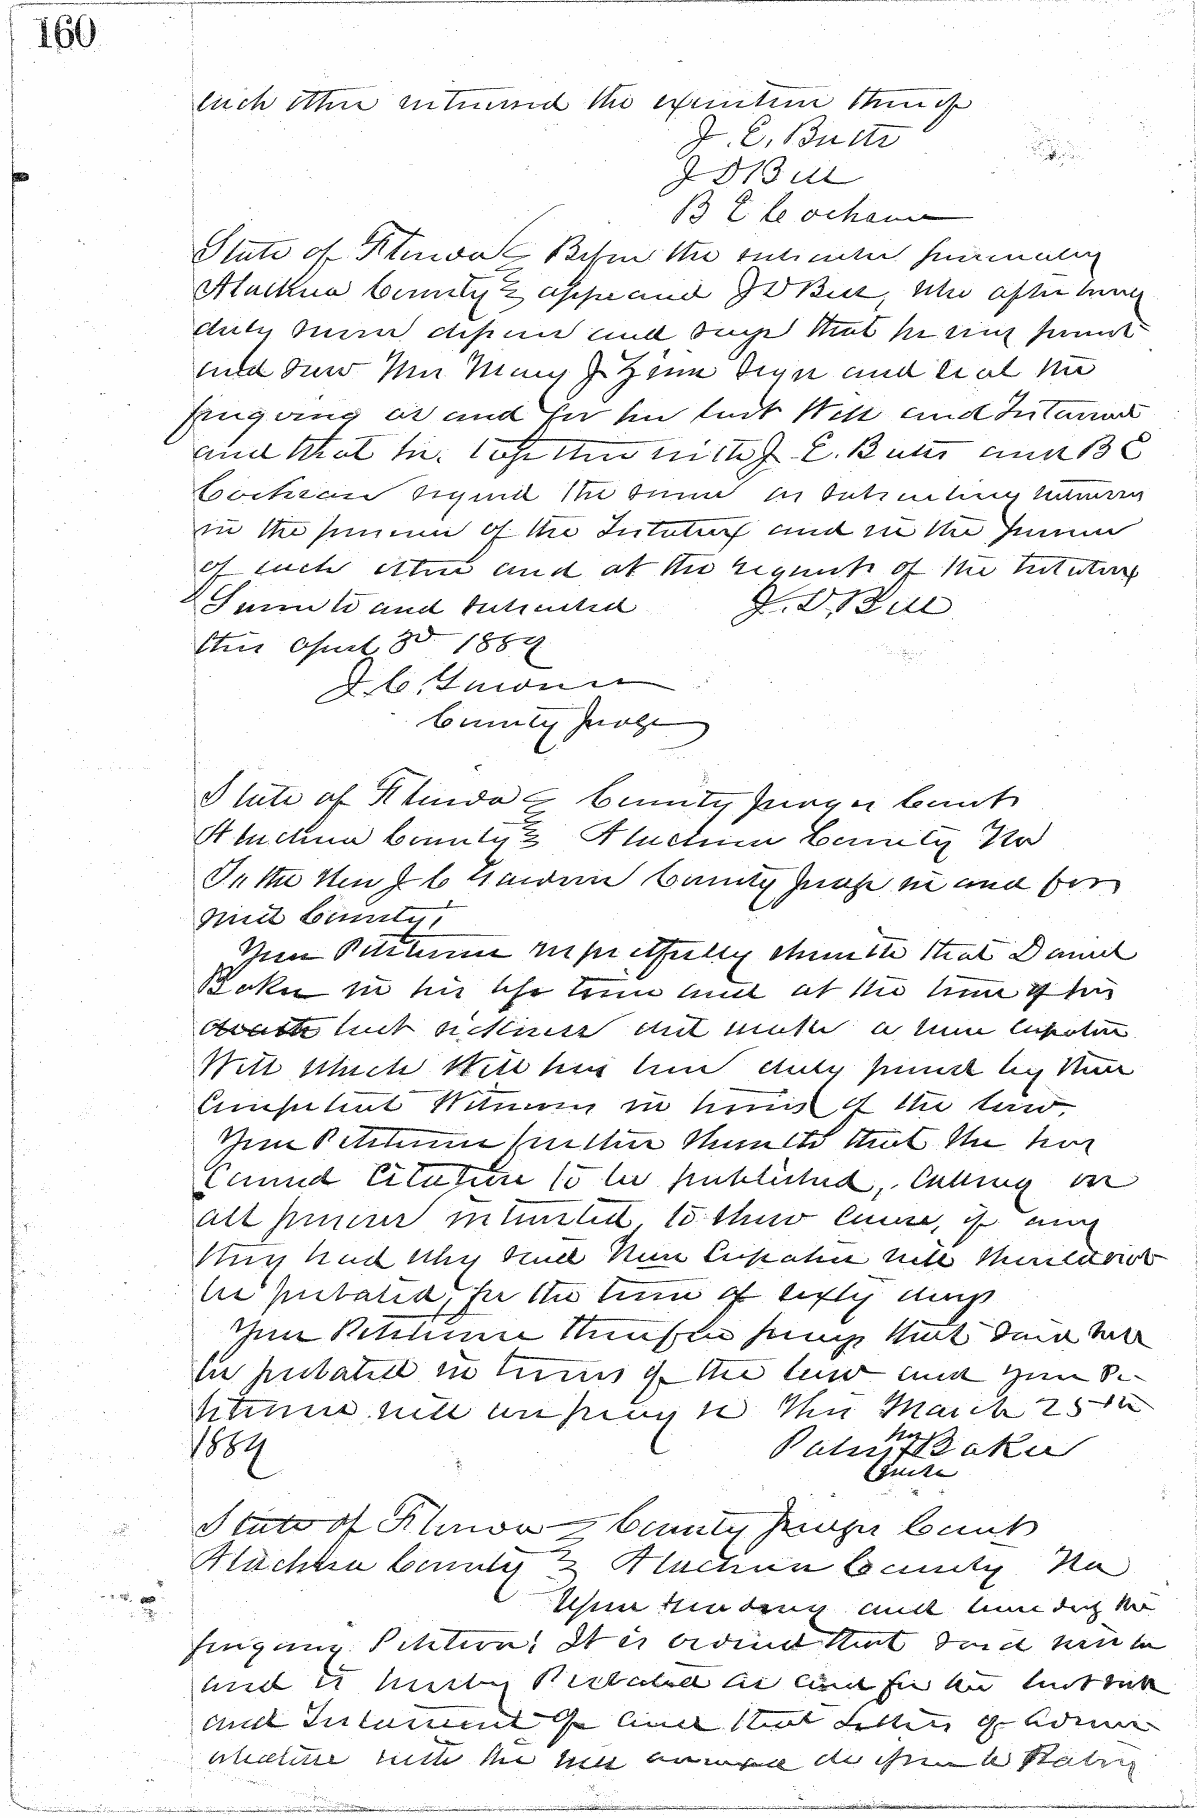 160
each other witnessed the execution thereof
J. E. Butts
J D Bill
B E Cochran
State of Florida Before the subscriber personally
Alachua County appeared J D Bill, who after being
duly sworn deposes and says that he was present
and saw Mrs Mary J Zinn sign and seal the
foregoing as and for her last Will and Testament
and that he together with J. E. Butts and B E
Cochran signed the same as subscribing witnesses
in the presence of the Testatrix and in the presence
of each other and at the request of the testatrix
Sworn to and subscribed J. D. Bill
this April 3d 1889
J. C. Gardner
County Judge
State of Florida County Judges Court
Alachua County Alachua County Fla
To the Hon J C Gardner County Judge in and for
said County,
Your Petitioner respectfully showeth that Daniel
Baker in his life time and at the time of his
death last sickness did make a nun cupative
Will which Will has been duly proved by three
Competent Witnesses in terms of the law.
Your Petitioner further showeth that she has
Caused Citation to be published, calling on
all persons interested, to show cause, if any
they had why said Nun Cupative will should not
be probated, for the time of sixty days
Your Petitioner therefore prays that said will
be probated in terms of the law and your Pe-
titioner will ever pray &c This March 25th
1889 her
Patsy X Baker
mark
State of Florida County Judges Court
Alachua County Alachua County Fla
Upon reading and considering the
foregoing Petition, It is ordered that said will be
and is hereby Probated as and for the last will
and Testament of and that Letters of Admin
istration with the will annexed do issue to Patsy